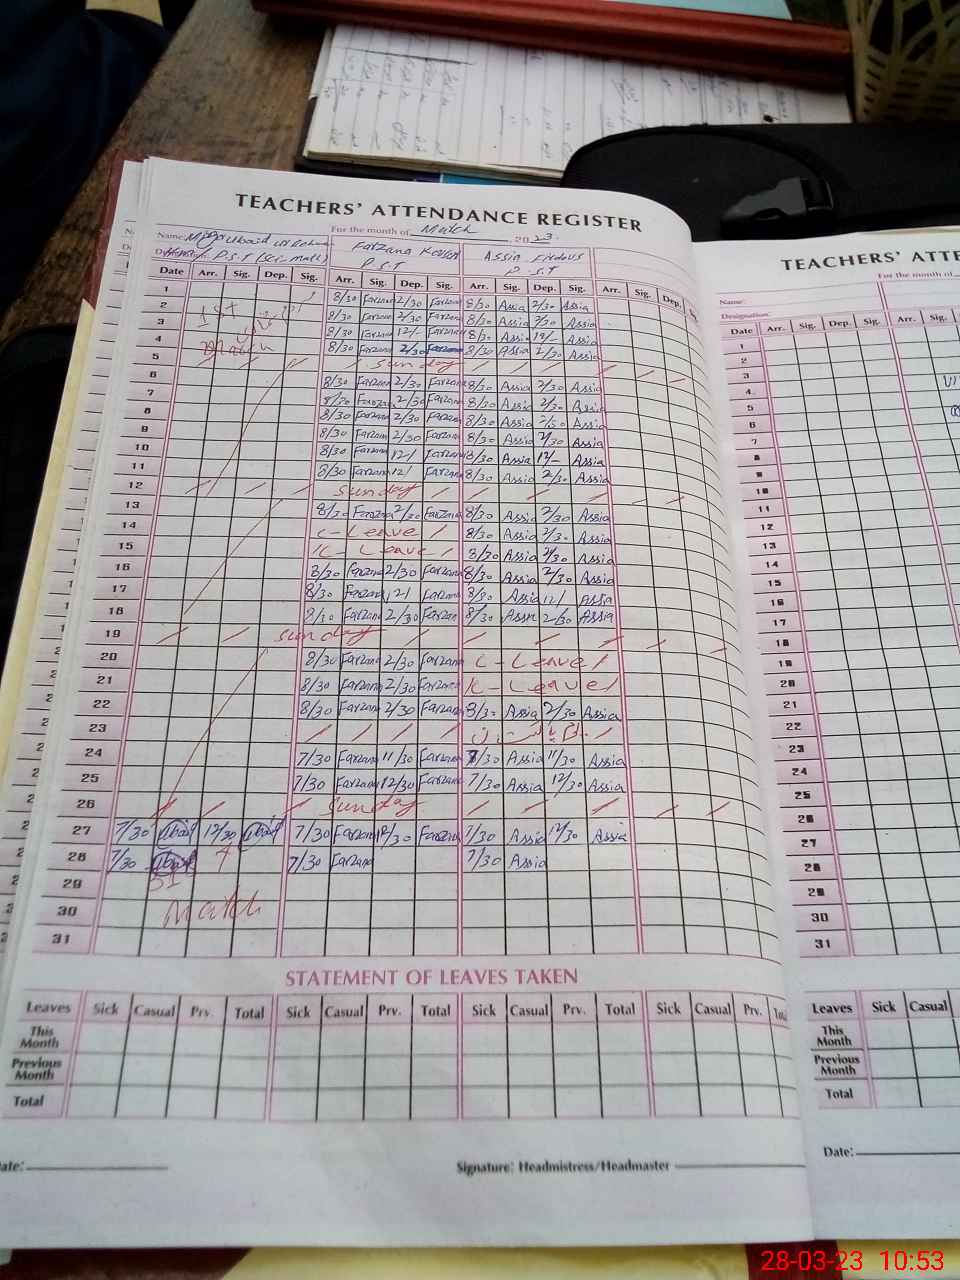 TEACHERS' ATTENDANCE REGISTER
For the month of March 2023.
Name: Farzana Kousar Assia Firdous
P.S.T P.S.T P.S.T
Date Arr. Sig. Dep. Sig. Arr. Sig. Dep. Sig. Arr. Sig. Dep. Sig. Arr. Sig. Dep.
1 8/30 Farzana 2/30 Farzana 8/30 Assia 2/30 Assia
2 1st 8/30 Farzana 2/30 Farzana 8/30 Assia 2/30 Assia
3 8/30 Farzana 12/- Farzana 8/30 Assia 12/- Assia
4 March 8/30 Farzana 2/30 Farzana 8/30 Assia 2/30 Assia
5 Sunday
6 8/30 Farzana 2/30 Farzana 8/30 Assia 2/30 Assia
7 8/30 Farzana 2/30 Farzana 8/30 Assia 2/30 Assia
8 8/30 Farzana 2/30 Farzana 8/30 Assia 2/30 Assia
9 8/30 Farzana 2/30 Farzana 8/30 Assia 2/30 Assia
10 8/30 Farzana 12/ Farzana 8/30 Assia 12/- Assia
11 8/30 Farzana 12/ Farzana 8/30 Assia 2/30 Assia
12 Sunday
13 8/30 Farzana 2/30 Farzana 8/30 Assia 2/30 Assia
14 C-Leave 8/30 Assia 2/30 Assia
15 C-Leave 8/30 Assia 2/30 Assia
16 8/30 Farzana 2/30 Farzana 8/30 Assia 2/30 Assia
17 8/30 Farzana 12/ Farzana 8/30 Assia 12/ Assia
18 8/30 Farzana 2/30 Farzana 8/30 Assia 2/30 Assia
19 Sunday
20 8/30 Farzana 2/30 Farzana C-Leave
21 8/30 Farzana 2/30 Farzana C-Leave
22 8/30 Farzana 2/30 Farzana 8/30 Assia 2/30 Assia
23
24 7/30 Farzana 11/30 Farzana 7/30 Assia 11/30 Assia
25 7/30 Farzana 12/30 Farzana 7/30 Assia 12/30 Assia
26 Sunday
27 7/30 Ubaid 12/30 Ubaid 7/30 Farzana 12/30 Farzana 7/30 Assia 12/30 Assia
28 7/30 Ubaid 7/30 Farzana 7/30 Assia
29
30 March
31
STATEMENT OF LEAVES TAKEN
Leaves Sick Casual Prv. Total Sick Casual Prv. Total Sick Casual Prv. Total Sick Casual Prv.
This Month
Previous Month
Total
Date:
Signature: Headmistress/Headmaster
TEACHERS' ATTE
For the month of
Name:
Designation:
Date Arr. Sig. Dep. Sig. Arr. Sig.
1
2
3
4
5
6
7
8
9
10
11
12
13
14
15
16
17
18
19
20
21
22
23
24
25
26
27
28
29
30
31
Leaves Sick Casual
This Month
Previous Month
Total
Date:
28-03-23 10:53